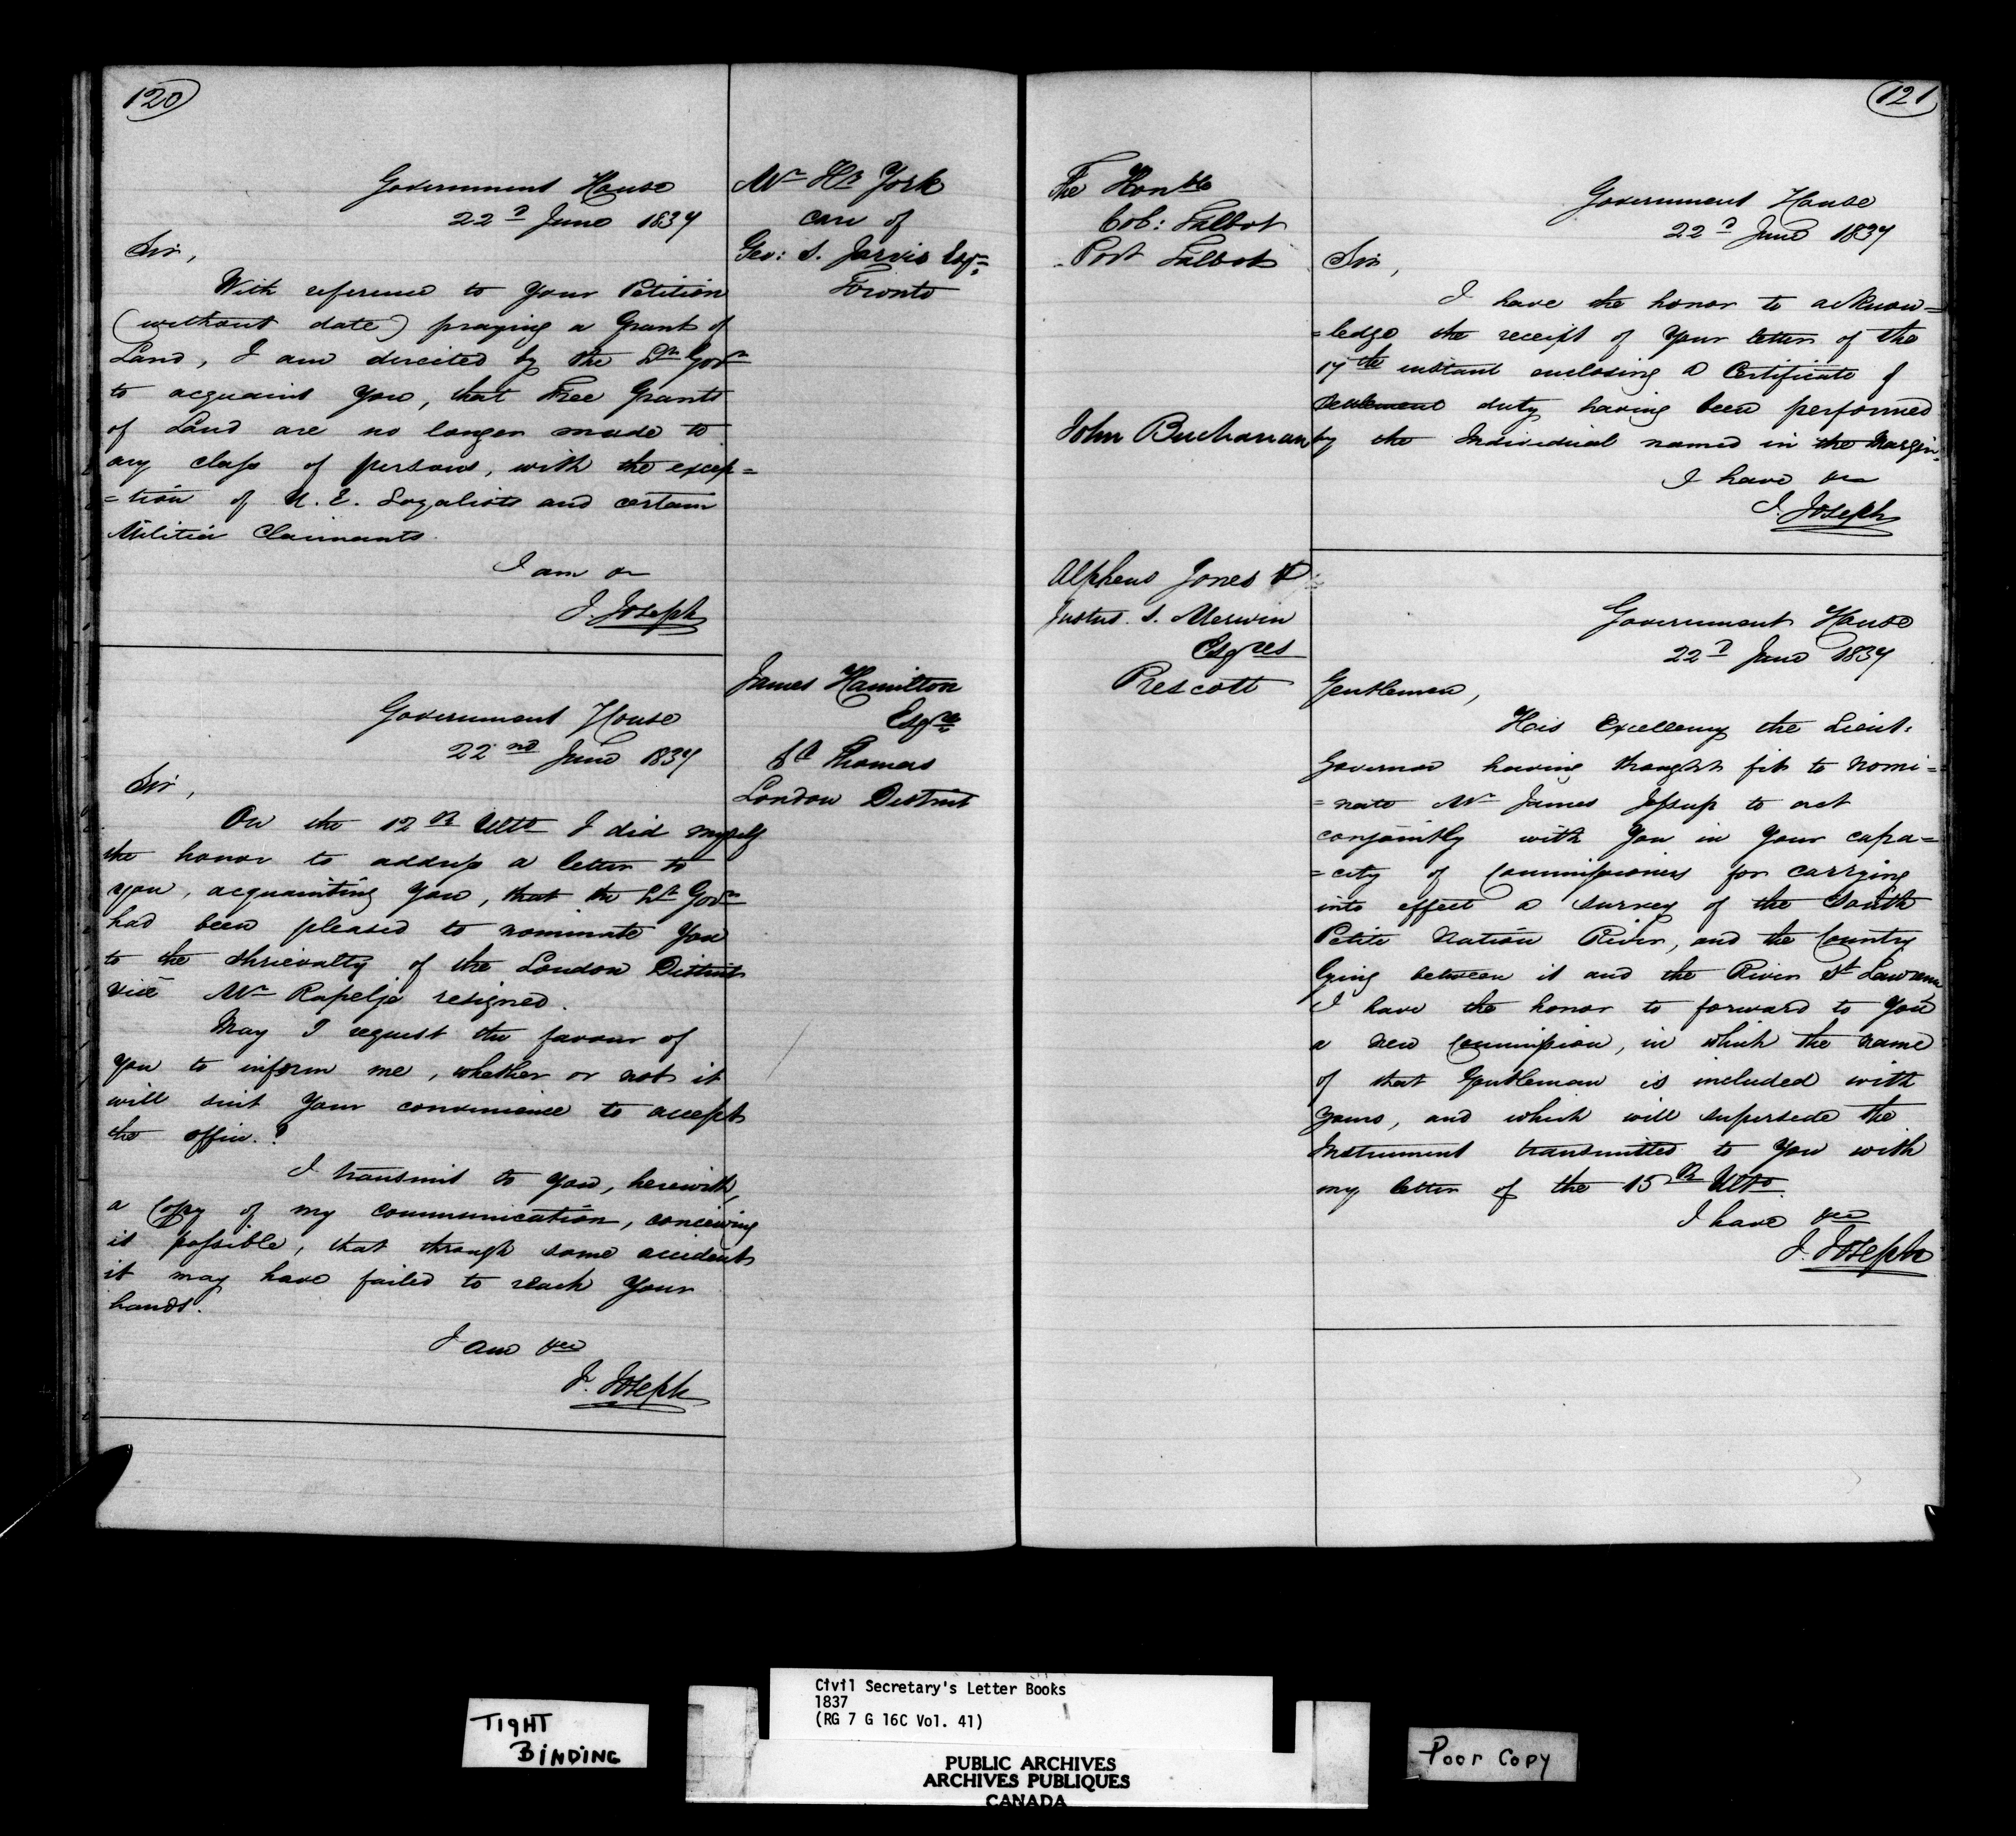 120
Government House
22d June 1837
Mr Hy York
care of
Geo: S. Jarvis Esqr
Toronto
Sir,
With reference to Your Petition
(without date) praying a Grant of
Land, I am directed by the Lt Govr
to acquaint You, that Free Grants
of Land are no longer made to
any class of persons, with the excep=
=tion of U. E. Loyalists and certain
Militia Claimants.
I am &c
J. Joseph
James Hamilton
Esqre
St Thomas
London District
Government House
22nd June 1837
Sir,
On the 12th Ulto I did myself
the honor to address a letter to
you, acquainting You, that the Lt Govr
had been pleased to nominate You
to the Shrievalty of the London District
vice Mr Rapelje resigned.
May I request the favour of
you to inform me, whether or not it
will suit Your convenience to accept
the office.?
I transmit to You, herewith,
a Copy of my communication, conceiving
it possible, that through some accident
it may have failed to reach Your
hands.
I am &c
J. Joseph
121
The Honble
Col: Talbot
Port Talbot
Government House
22d June 1837
Sir,
I have the honor to acknow=
=ledge the receipt of Your letter of the
17th instant enclosing a Certificate of
Settlement duty having been performed
John Buchanan
by the Individual named in the Margin.
I have &c
J. Joseph
Alpheus Jones &
Justus. S. Merwin
Esqres
Prescott
Government House
22d June 1837
Gentlemen,
His Excellency the Lieut:
Governor having thought fit to nomi=
=nate Mr James Jessup to act
conjointly with You in Your capa=
=city of Commissioners for carrying
into effect a survey of the South
Petite Nation River, and the Country
lying between it and the River St Lawrence
I have the honor to forward to You
a new Commission, in which the name
of that Gentleman is included with
Yours, and which will supersede the
Instrument transmitted to You with
my letter of the 15th Ulto.
I have &c
J. Joseph
TIGHT
BINDING
Civil Secretary's Letter Books
1837
(RG 7 G 16C Vol. 41)
PUBLIC ARCHIVES
ARCHIVES PUBLIQUES
CANADA
Poor Copy